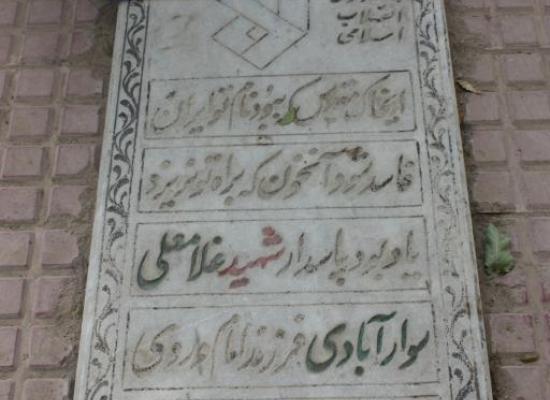 انقلاب
اسلامی
ایخاک مقدس که بود نام تو ایران
فاسد شود آنخون که براه تو نریزد
یادبود پاسدار شهید غلامعلی
سوارآبادی فرزند امام وردی